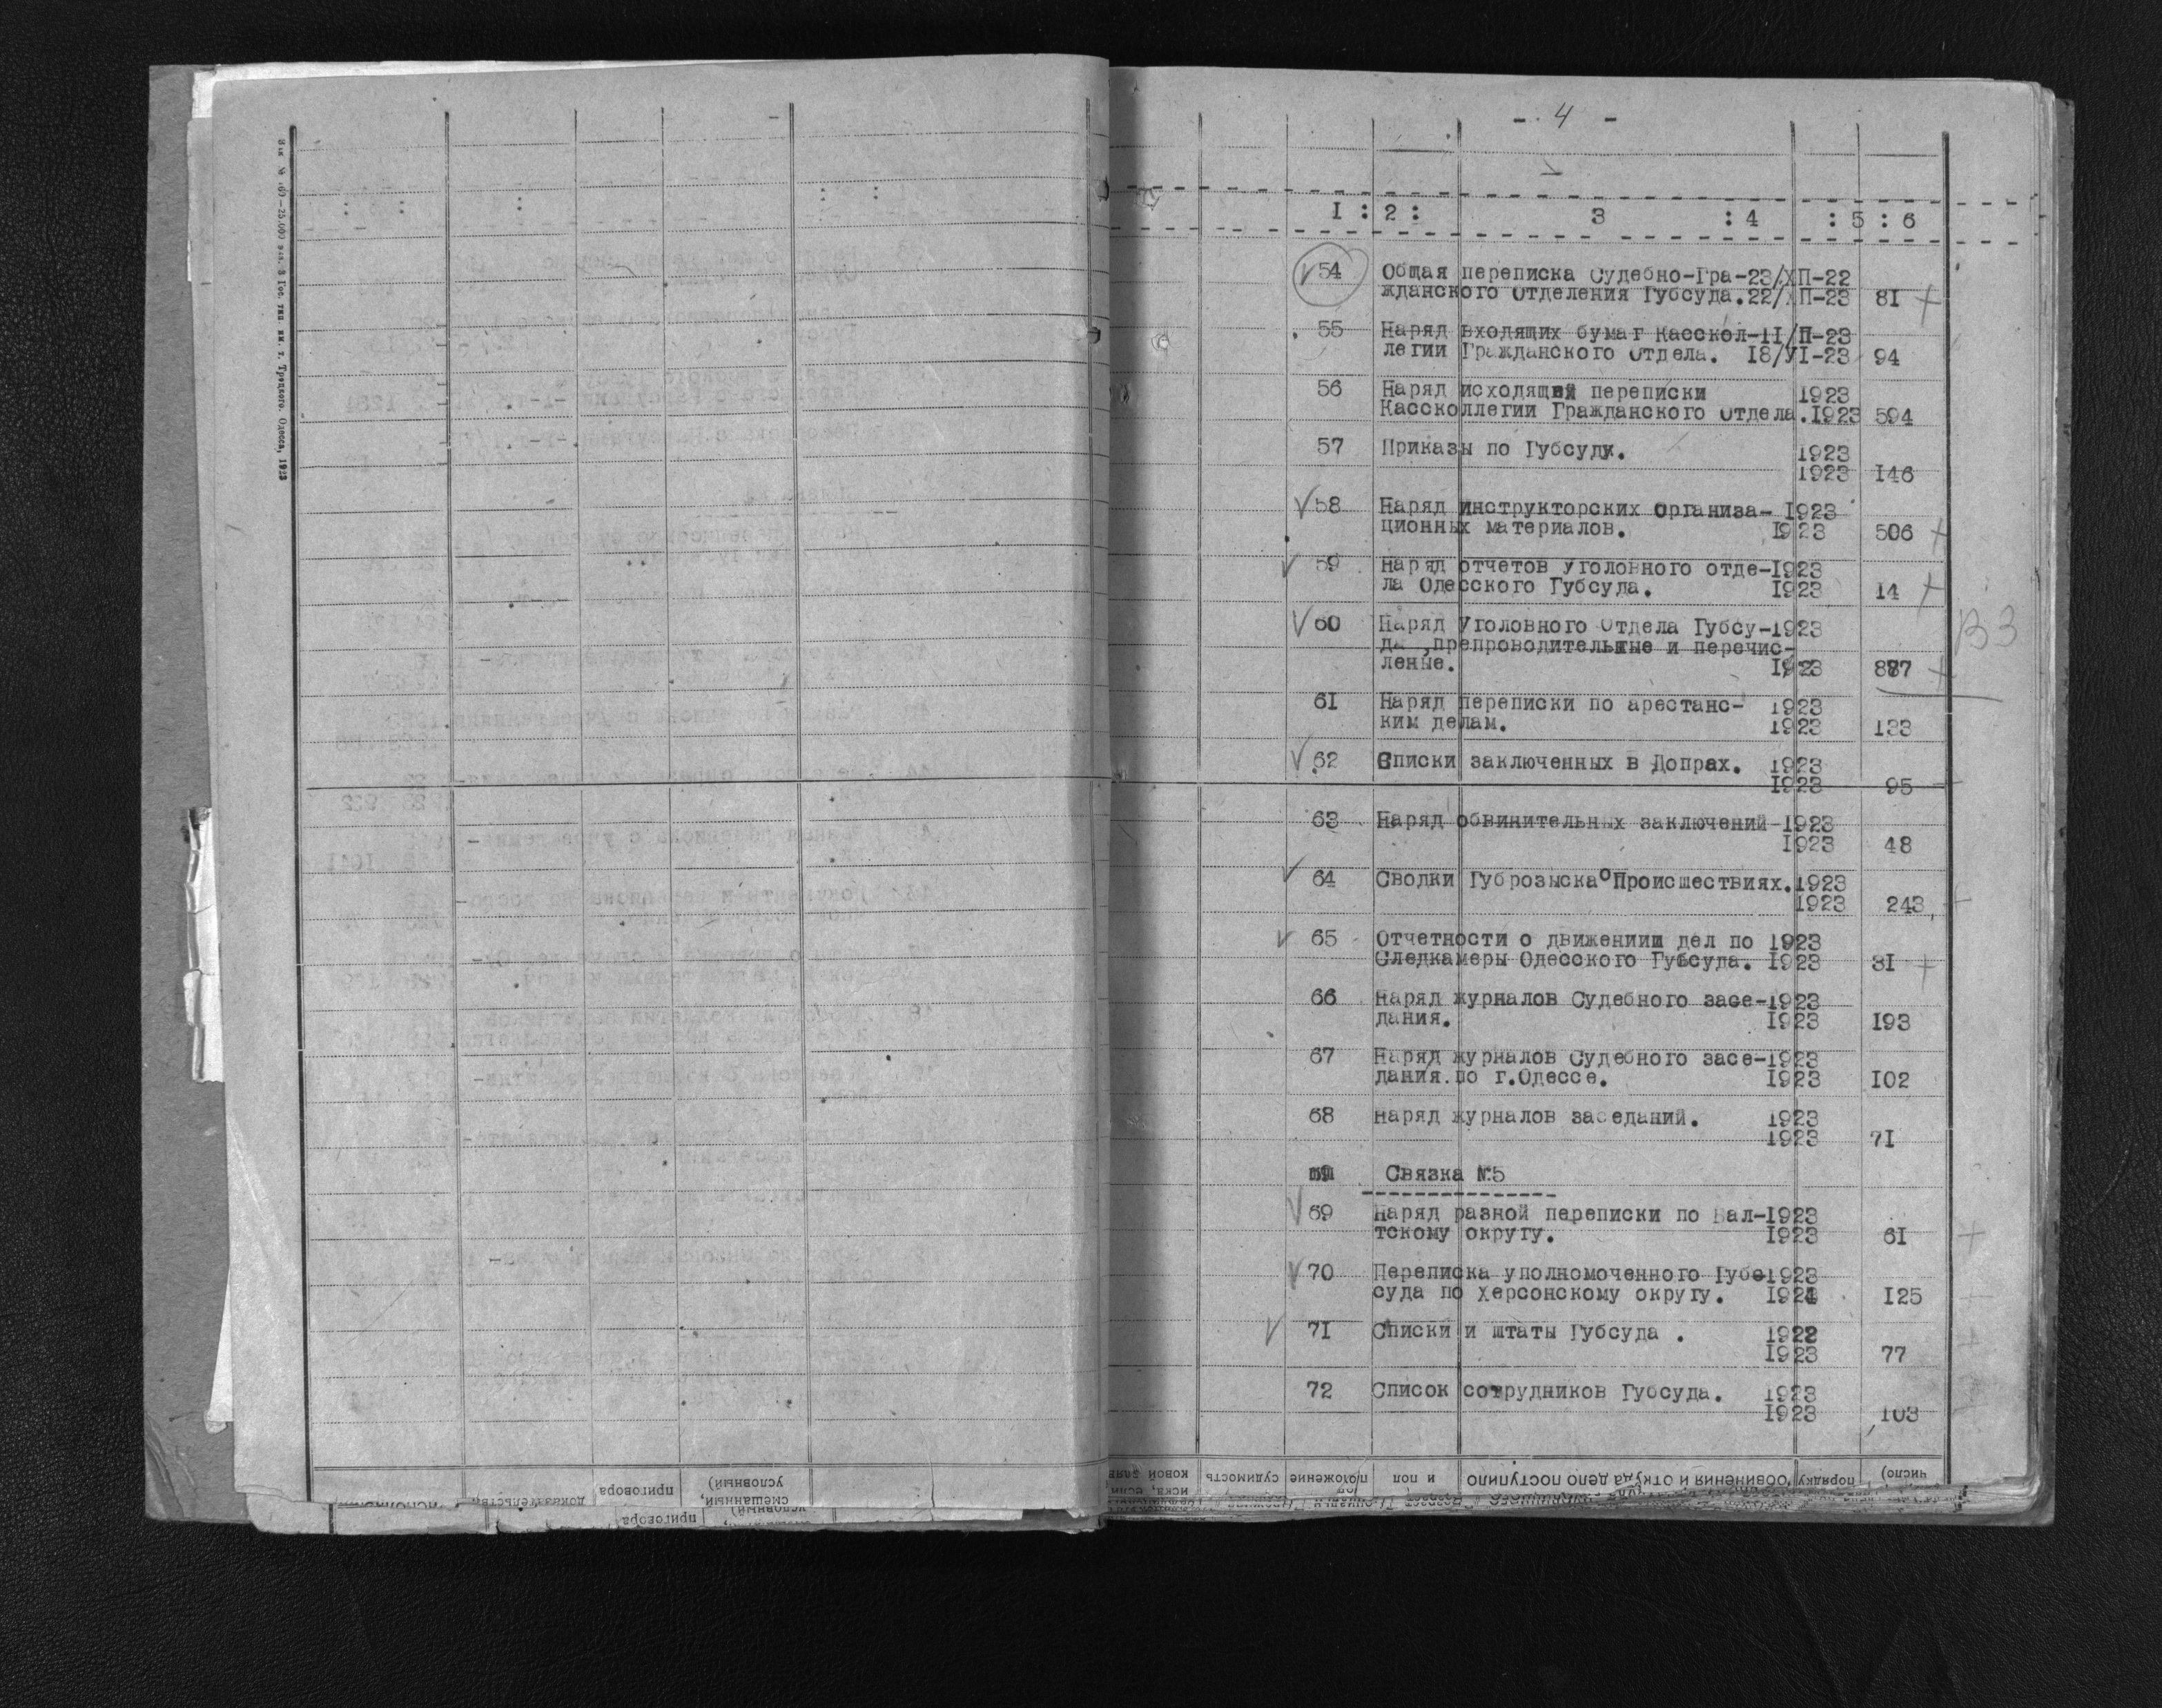 - 4 -
I : 2 : 3 : 4 : 5 : 6
54 Общая переписка Судебно-Гра-23/ХП-22
жданского Отделения Губсуда.22/ХП-23 81 +
55 Наряд входящих бумаг Касскол-11/П-23
легии Гражданского Отдела. 18/УI-23 94
56 Наряд исходящей переписки 1923
Кассколлегии Гражданского Отдела.1923 594
57 Приказы по Губсуду. 1923
1923 146
58 Наряд инструкторских Организа- 1923
ционных материалов. 1923 506 +
59 Наряд отчетов Уголовного отде-1923
ла Одесского Губсуда. 1923 14 +
60 Наряд Уголовного Отдела Губсу-1923
да ,препроводительные и перечис-
леные. 1923 877 +
61 Наряд переписки по арестанс- 1923
ким делам. 1923 133
62 Списки заключенных в Допрах. 1923
1923 95
63 Наряд обвинительных заключений-1923
1923 48
64 Сводки Губрозыска о Происшествиях.1923
1923 243 +
65 Отчетности о движениии дел по 1923
Следкамеры Одесского Губсуда. 1923 31 +
66 Наряд журналов Судебного засе-1923
дания. 1923 193
67 Наряд журналов Судебного засе-1923
дания.по г.Одессе. 1923 102
68 Наряд журналов заседаний. 1923
1923 71
Связка №5
69 Наряд разной переписки по Бал-1923
тскому округу. 1923 61 +
70 Переписка уполномоченного Губс-1923
суда по Херсонскому округу. 1924 125
71 Списки и штаты Губсуда . 1922
1923 77
72 Список сотрудников Губсуда. 1923
1923 103
число)
порядку
обвинения и откуда дело поступило
и пол
положение
судимость
условный)
смешанный,
приговора
доказательства
приговора